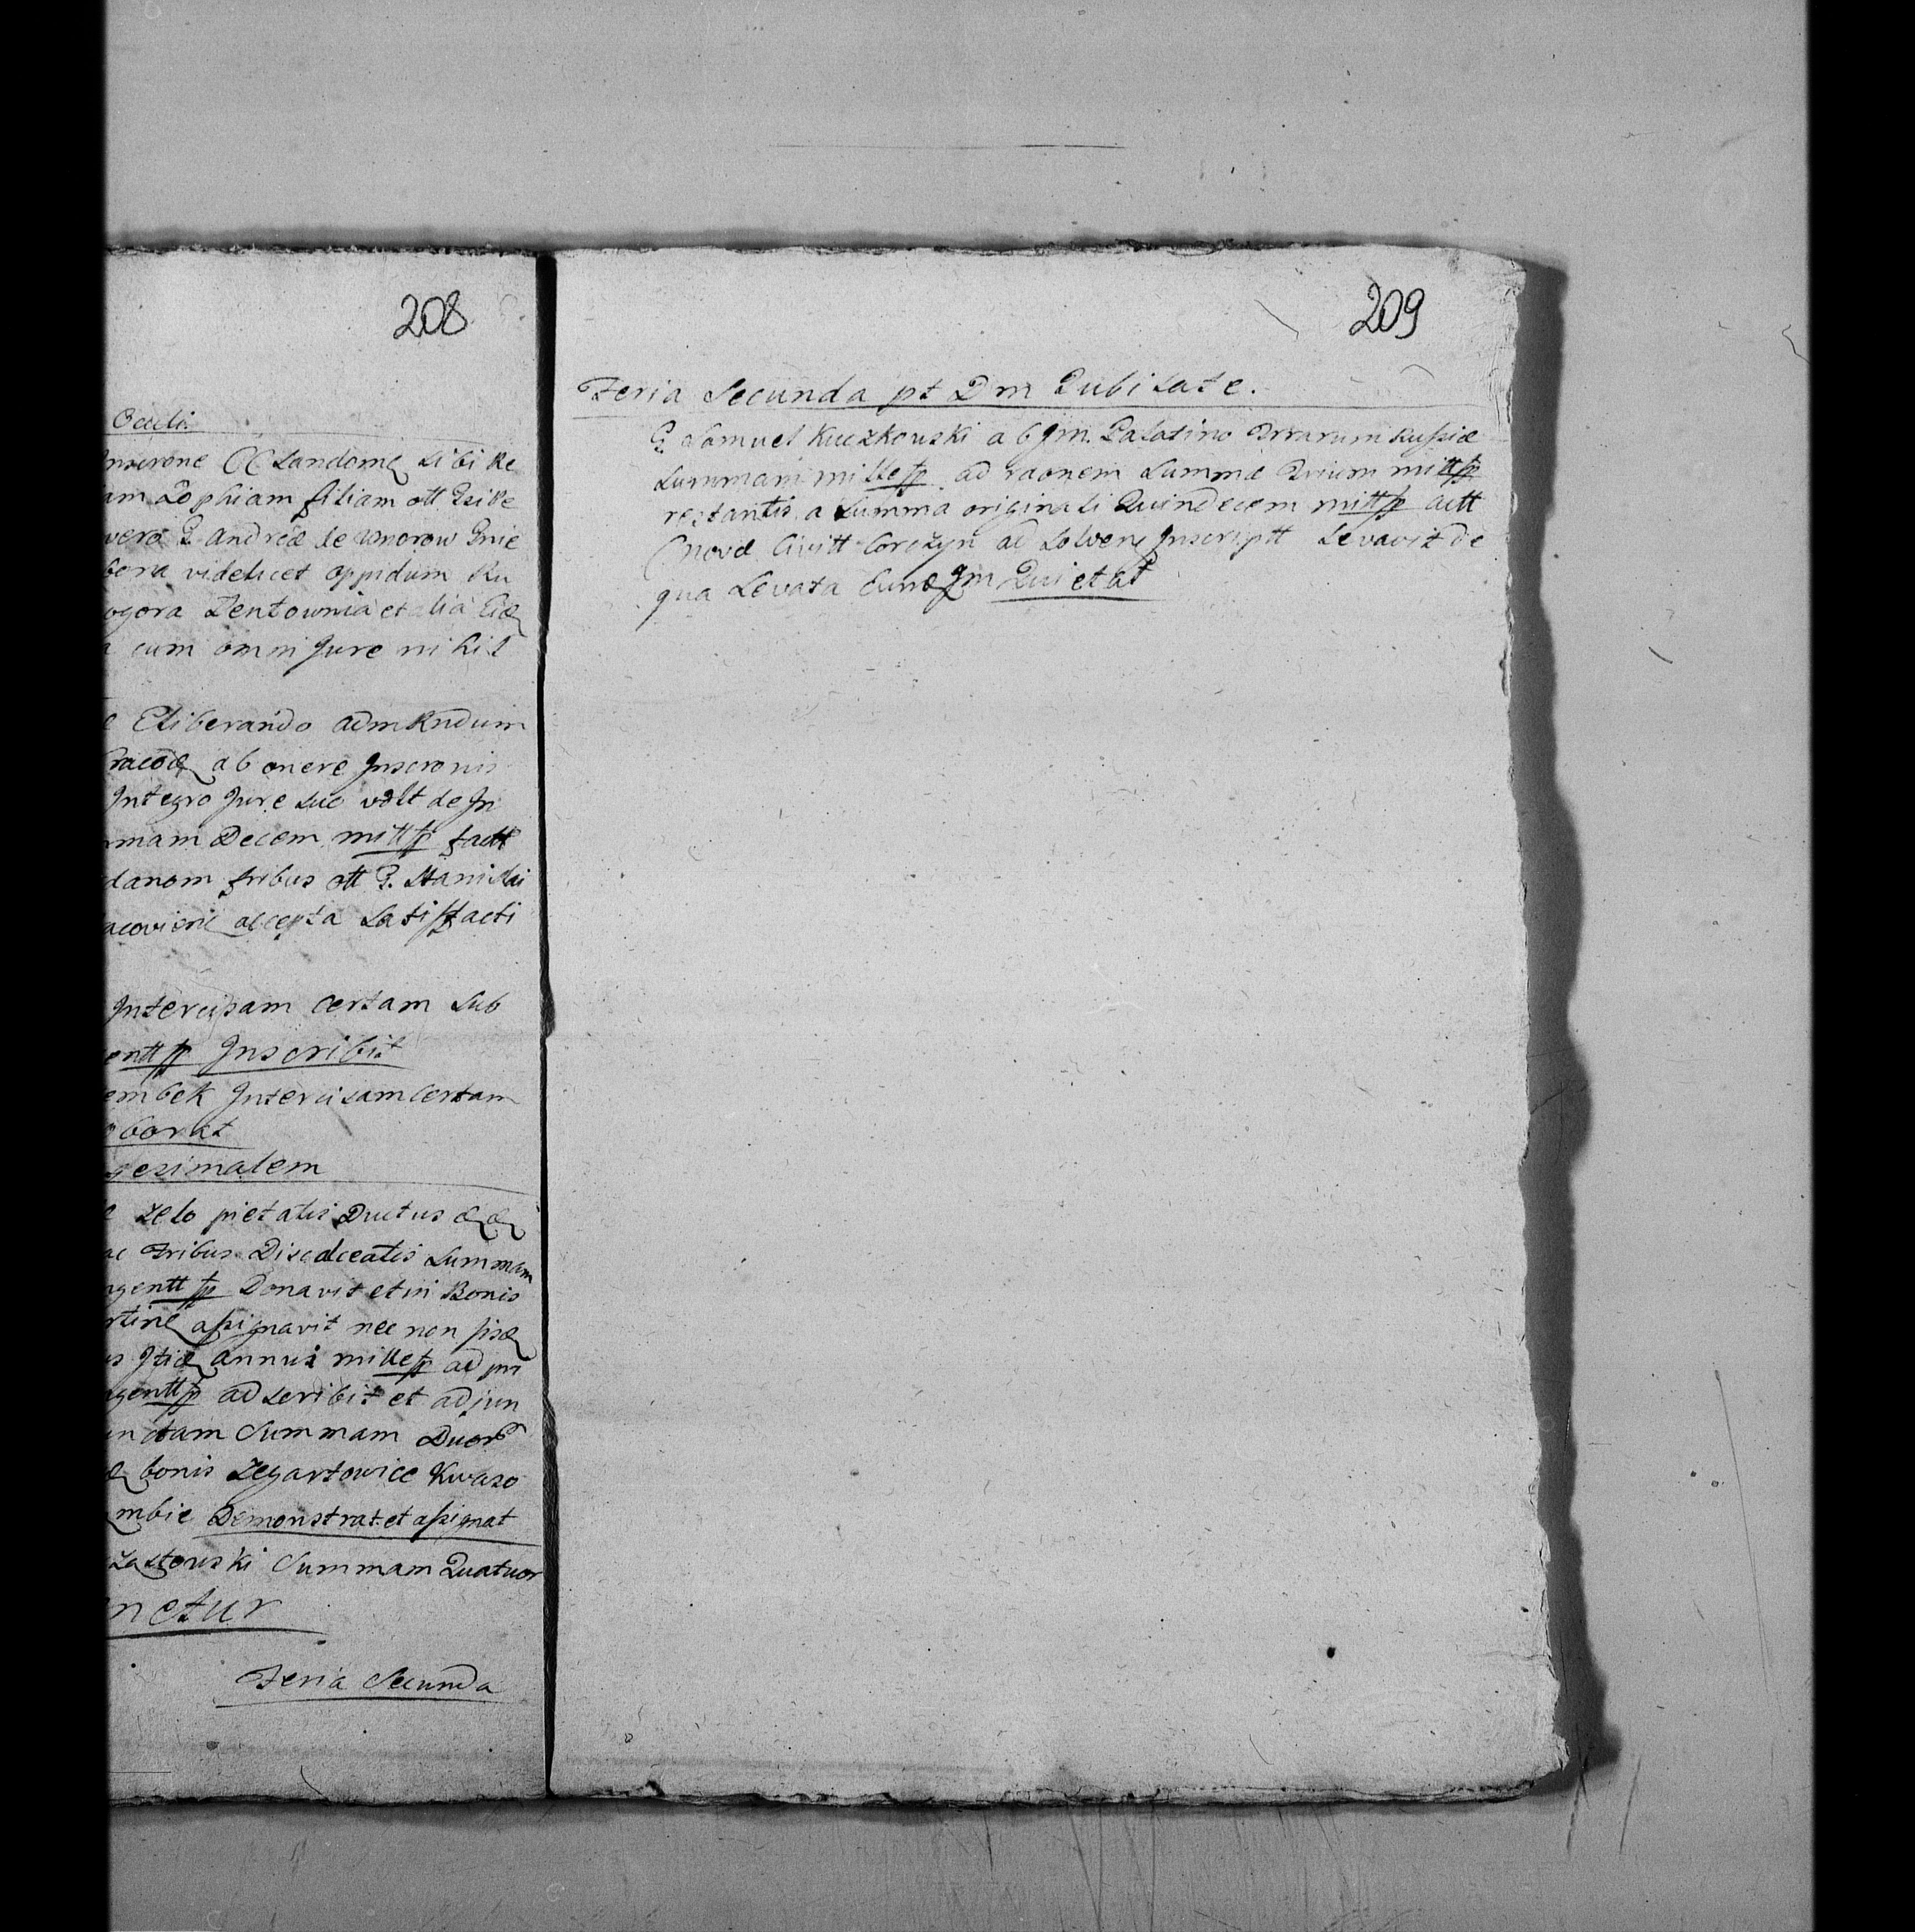 208
Oculi
Inscrone CC Sandome sibi Re
am Zophiam filiam ott
vero G. Andreæ de Unorow Gnie
bora videlicet oppidum Ru
ogora Zentownia et alia Eid
cum omni Jure nihil
Eliberando admkndum
Cracoæ ab onere Inscronis
Integro Jure suo volt de In
mam Decem mitt fp fact
danom fribus ott P. Stanislai
acovien accepta satisfacti
Intercisam certam sub
entt fp Inscribit
embek Intercisam certam
oborat
gesimalem
zelo pietatis Ductus
ac fribus Discalceatis summam
ngentt fp Donavit et in Bonis
rtine assignavit nec non
annui mille fp ad
ngentt fp adscribit et adjun
nctam Summam Duor
bonis Zegartowice Kwaso
mbie Demonstrat et assignat
zastowski Summam Quatuor
nctur
Feria Secunda
209
Feria Secunda pt Dm Jubilate.
G. Samuel Kuczkowski ab Jm. Palatino Trrarum Russiæ
summam mille fp ad raonem summæ Trium mitt fp
restantis a summa originali Quindecem mitt fp actt
Novæ Civitt Corczyn ad solven Inscriptt Levavit de
qua Levata Eund Jm Quietat